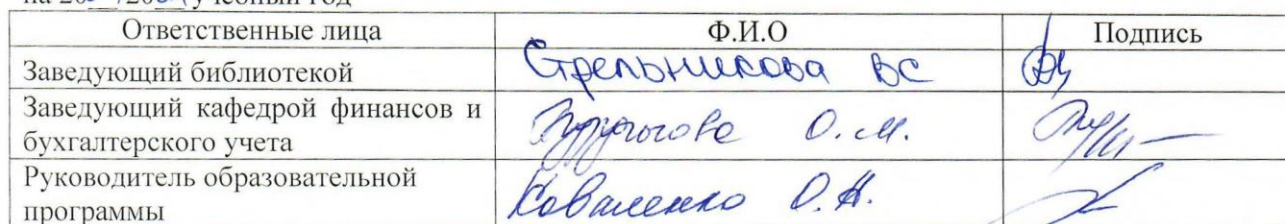 учебный год
Ответственные лица Ф.И.О Подпись
Заведующий библиотекой Стрельникова ВС
Заведующий кафедрой финансов и
бухгалтерского учета О.М.
Руководитель образовательной
программы Коваленко О.Н.